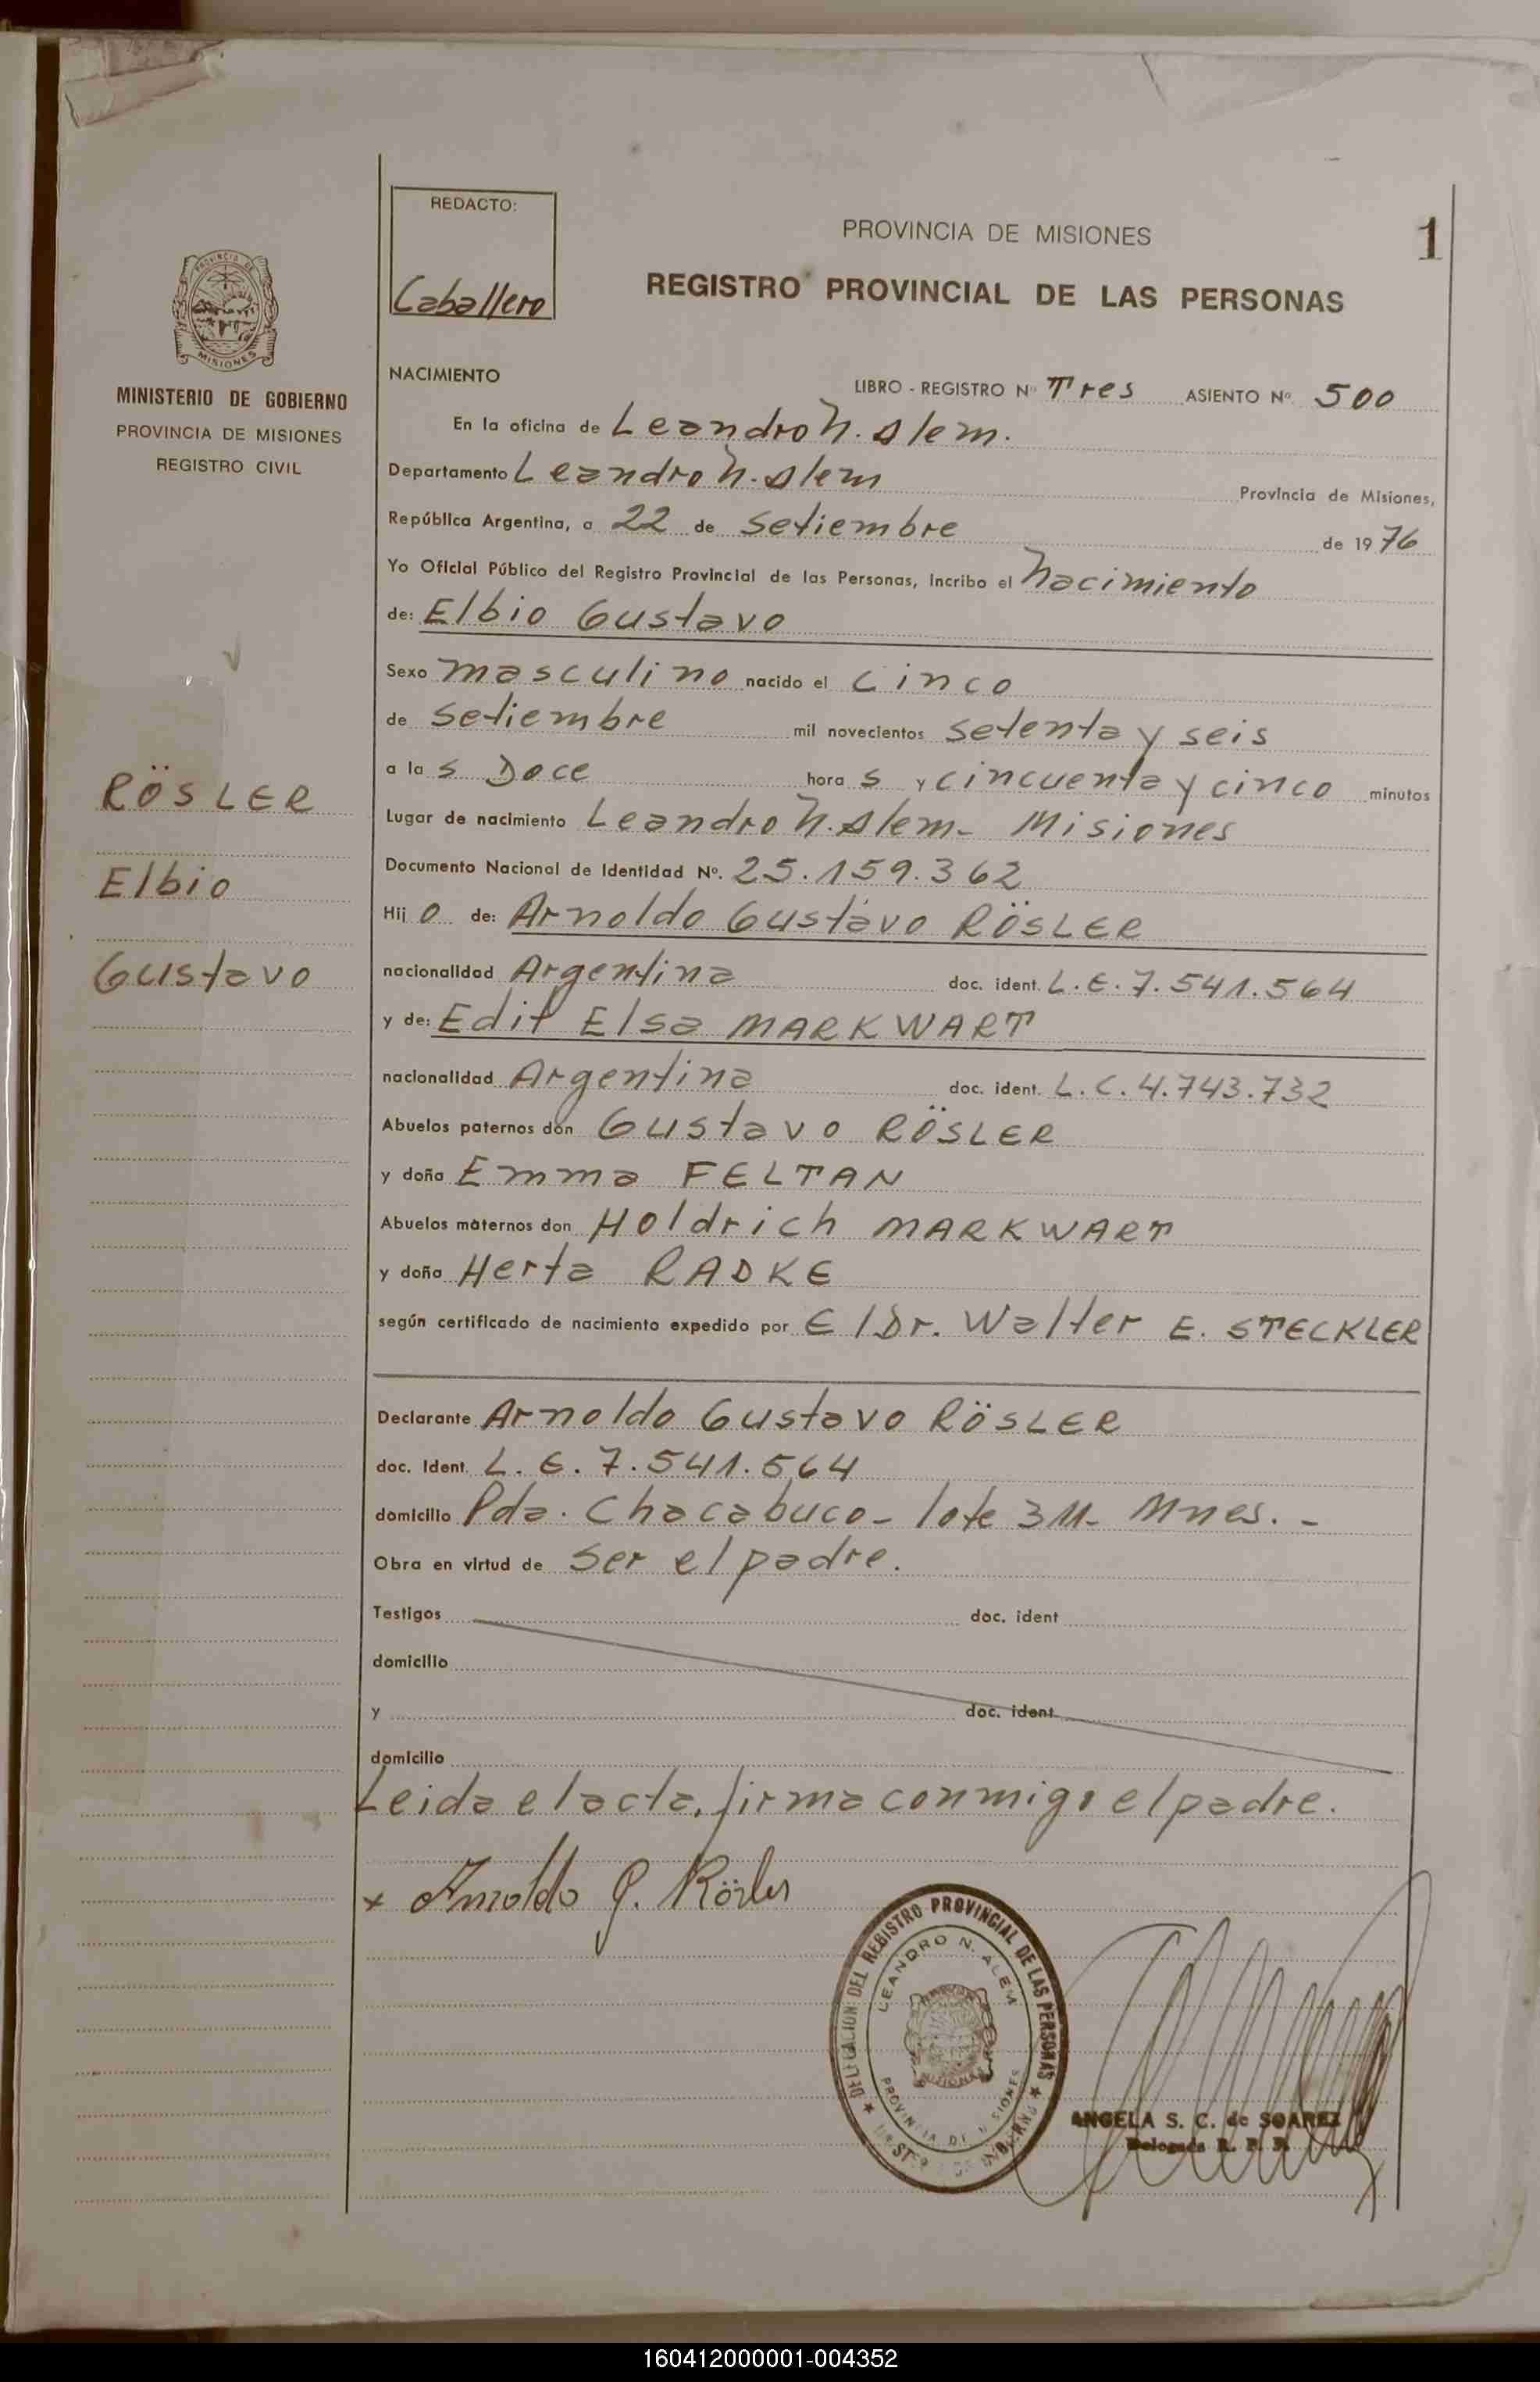 REDACTO:
Caballero
PROVINCIA DE MISIONES
1
REGISTRO PROVINCIAL DE LAS PERSONAS
PROVINCIA DE
MISIONES
MINISTERIO DE GOBIERNO
PROVINCIA DE MISIONES
REGISTRO CIVIL
RÖSLER
Elbio
Gustavo
NACIMIENTO
LIBRO - REGISTRO Nº Tres ASIENTO Nº 500
En la oficina de Leandro N. Alem.
Departamento Leandro N. Alem Provincia de Misiones,
República Argentina, a 22 de Setiembre de 1976
Yo Oficial Público del Registro Provincial de las Personas, incribo el Nacimiento
de: Elbio Gustavo
Sexo masculino nacido el Cinco
de Setiembre mil novecientos setenta y seis
a la s Doce hora s y cincuenta y cinco minutos
Lugar de nacimiento Leandro N. Alem - Misiones
Documento Nacional de Identidad Nº. 25.159.362
Hij o de: Arnoldo Gustavo RÖSLER
nacionalidad Argentina doc. ident. L.E. 7.541.564
y de: Edit Elsa MARKWART
nacionalidad Argentina doc. ident. L.C. 4.743.732
Abuelos paternos don Gustavo RÖSLER
y doña Emma FELTAN
Abuelos maternos don Holdrich MARKWART
y doña Herta RADKE
según certificado de nacimiento expedido por El Dr. Walter E. STECKLER
Declarante Arnoldo Gustavo RÖSLER
doc. Ident. L.E. 7.541.564
domicilio Pda. Chacabuco - lote 311 - Mnes. -
Obra en virtud de ser el padre.
Testigos doc. ident
domicilio
y doc. ident
domicilio
Leida el acta, firma conmigo el padre.
x Arnoldo G. Rösler
DELEGACION DEL REGISTRO PROVINCIAL DE LAS PERSONAS
LEANDRO N. ALEM
PROVINCIA DE MISIONES
ANGELA S. C. de SOAREZ